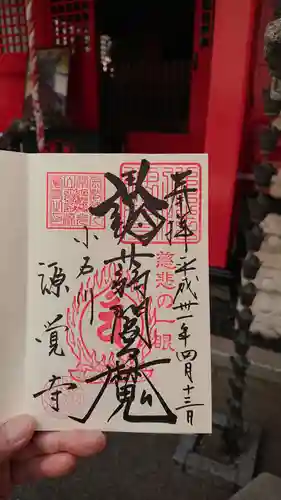 奉拝 平成卅一年四月十三日
慈悲の一眼
蒟蒻閻魔
小石川
源覚寺